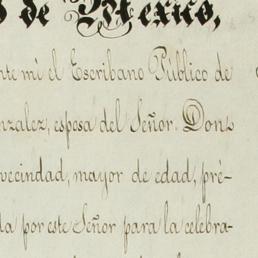 de Mexico,
nte mi el Escribano Público de
nzalez, esposa del Señor Don
vecindad, mayor de edad, pré-
da por este Señor para la celebra-